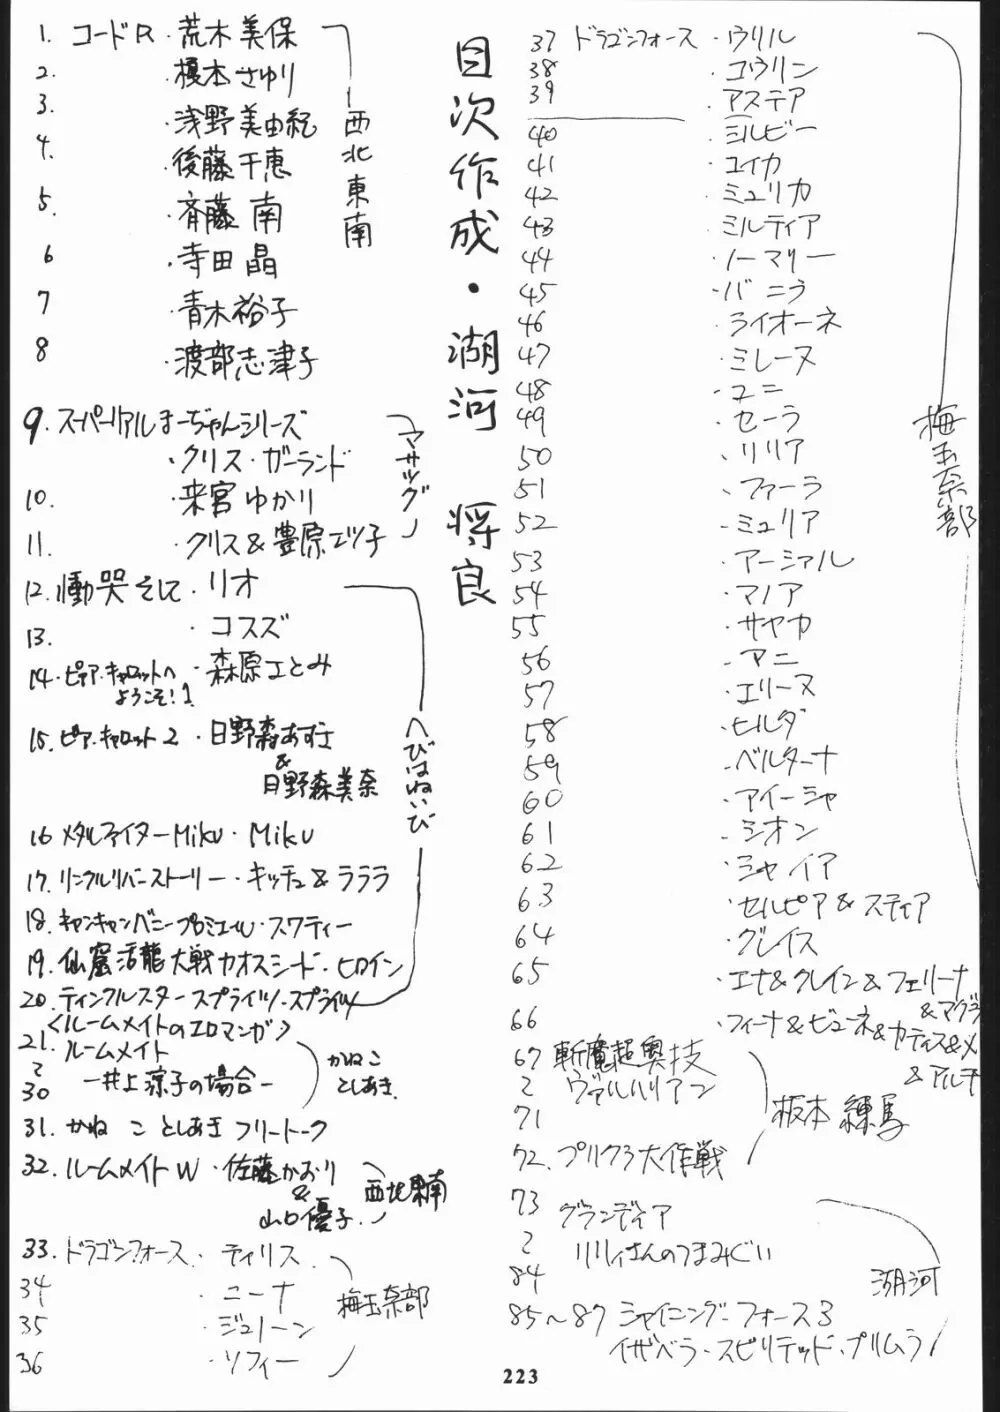 目次作成・湖河 将良
1. コードR ・荒木美保
2. ・榎本さゆり
3. ・浅野美由紀
4. ・後藤千恵
5. ・斉藤 南
6 ・寺田晶
7 ・青木裕子
8 ・渡部志津子
西北東南
9. スーパーリアルまーちゃんシリーズ
・クリス・ガーランド
10. ・来宮ゆかり
11. ・クリス&豊原エツ子
マサツグ
12. 慟哭そして・リオ
13. ・コスズ
14. ピアキャロットへようこそ!! ・森原さとみ
15. ピア・キャロット2 ・日野森あずさ
&
日野森美奈
16 メタルファイターMiku・Miku
17. リンクルリバーストーリー・キッチュ&ラララ
18. キャンキャンバニープルミエール・スワティー
19. 仙窟活龍大戦カオスシード・ヒロイン
20. ティンクルスタースプライツ・スプライツ
へびはねいび
<ルームメイトのエロマンガ>
21. ルームメイト
〜
30 ー井上涼子の場合ー
かねこ
としあき
31. かねことしあきフリートーク
32. ルームメイトW・佐藤かおり
&
山口優子
西北東南
33. ドラゴンフォース・ティリス
34 ・ニーナ
35 ・ジュノーン
36 ・ソフィー
梅玉奈部
37 ドラゴンフォース ・ウリル
38 ・コウリン
39 ・アステア
40 ・ミルビー
41 ・ユイカ
42 ・ミュリカ
43 ・ミルティア
44 ・ノーマリー
45 ・バニラ
46 ・ライオーネ
47 ・ミレーヌ
48 ・ユニ
49 ・セーラ
50 ・リリア
51 ・ファーラ
52 ・ミュリア
53 ・アーシァル
54 ・マノア
55 ・サヤカ
56 ・アニ
57 ・エリーヌ
58 ・ヒルダ
59 ・ベルターナ
60 ・アイーシャ
61 ・シオン
62 ・シャイア
63 ・セルピア&スティア
64 ・グレイス
65 ・エナ&クレイン&フェリーナ
&マグラ
66 ・フィーナ&ビューネ&カティス&メ
&アルナ
梅玉奈部
67 斬魔超奥技
〜 ヴァルハリアン
71
72. プリクラ大作戦
板本 練馬
73 グランディア
〜 リリィさんのつまみぐい
84
85〜87 シャイニング・フォース3
イザベラ・スピリテッド・プリムラ
湖河
223